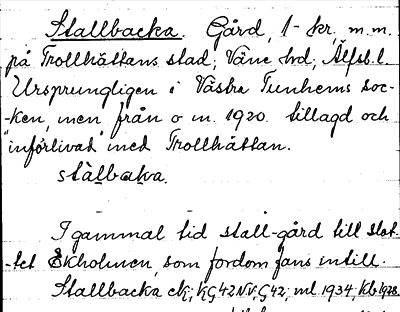 Stallbacka. Gård, 1 kr, m.m.
på Trollhättans stad; Väne hd, Älfsb. l.
Ursprungligen i Västra Tunhems soc-
-ken, men från o m. 1920. tillagd och
"införlivat" med Trollhättan.
stàlbaka.
I gammal tid stall-gård till slot-
-tet Ekholmen, som fordom fans intill.
Stallbacka ek; KG42NV; G42; ml 1934; Kb 1928